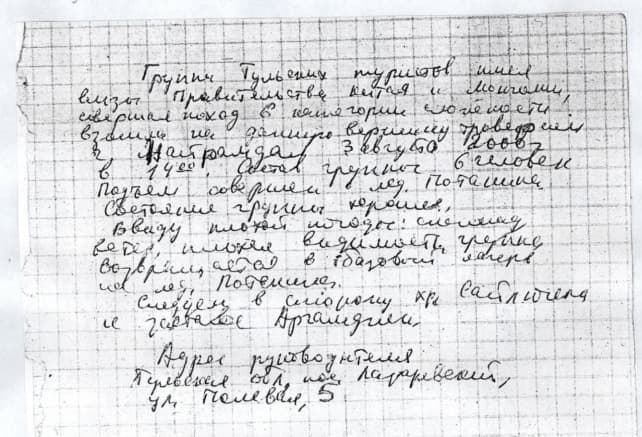 Группа Тульских туристов имея
визы Правительства Китая и Монголии,
совершая поход 6 категории сложности
взошла на данную вершину
г. Найрамдал 3 августа 2000г.
в 14 00 состав группы 6 человек
Подъём совершен лед. Потанина
Состояние группы хорошее.
Ввиду плохой погоды: снегопад
ветер, плохая видимость, группа
возвращается в базовый лагерь
на лед. Потанина.
Следуем в сторону хр. Сайлюгема
и заставе Аргамджи.
Адрес руководителя
Тульская обл. пос. Лазаревский,
ул. Полевая, 5